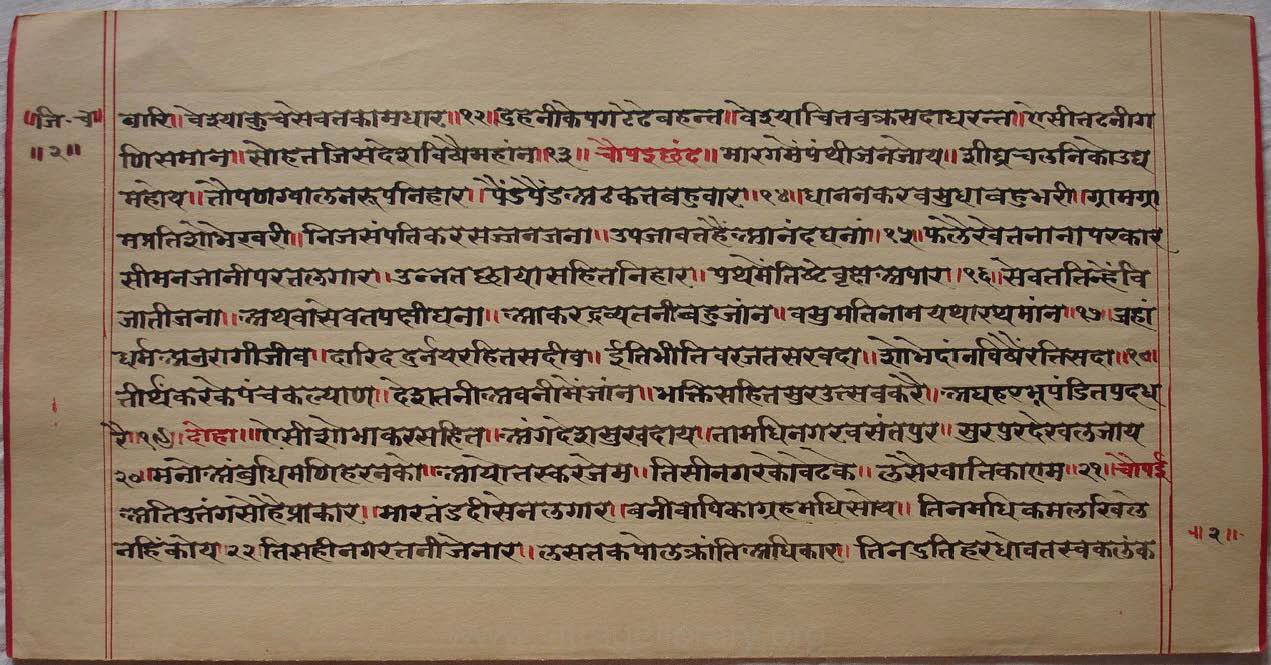 ॥जि-च॥ बारि॥ वेश्याकुचसेवतकामधार॥१२॥द्रहनीकेपगटेटेवहन्त॥वेश्याचित्तवक्रसदाधरन्त॥ऐसीतटनीग
॥२॥ णिसमान॥सोहतजिसदेशविषैमहांन॥१३॥चौपइछंद॥मारगमेंपंथीजनजोय॥शीघ्रचलनिकोउद्य
महोय॥तौपणग्वालनरूपनिहार॥पैंडपैंडअटकतबहुवार॥१४॥धाननकरवसुधाबहुभरी॥ग्रामग्रा
मप्रतिशोभेखरी॥निजसंपतिकरसज्जनजना॥उपजावतहैंआनंदघनां॥१५॥फलैखेतनानापरकार
सीमनजानीपरतलगार॥उन्नतछायासहितनिहार॥प्रथमेंतिष्टेवृक्षअपार॥१६॥सेवततिन्हेंवि
जातीजना॥अथवासेवतपक्षीघना॥आकरद्रव्यतनीबहुजांन॥वसुमतिनामयथारथमांन॥१७॥जहां
धर्मअनुरागीजीव॥दारिददुर्नयरहितसदीव॥ईतिभीतिवरजतसरवदा॥शोभेदांनविषैंरतिसदा॥१८॥
तीर्थंकरकेपंचकल्याण॥देशतनीअवनीमेंजांन॥भक्तिसहितसुरउत्सवकरै॥अघहरभूपंडितप्रदध
रै॥१९॥दोहा॥ऐसीशोभाकरसहित॥अंगदेशसुखदाय॥तामधिनगरवसंतपुर॥सुरपुरदेखलजाय
२०॥मनोअंबुधिमणिहरनको॥आयोतस्करजेम॥तिसीनगरकोवेढके॥लसैखातिकाएम॥२१॥चौपई
अतिउतंगसोहैप्राकार॥मारतंडदीसेनलगार॥बनीवापिकाग्रहमधिसोय॥तिनमधिकमलखिले
नहिंकोय२२तिसहीनगरतनीजेनार॥लसतकपोलक्रांतिअधिकार॥तिनद्रतिहरधोवतस्वकलंक
॥२॥